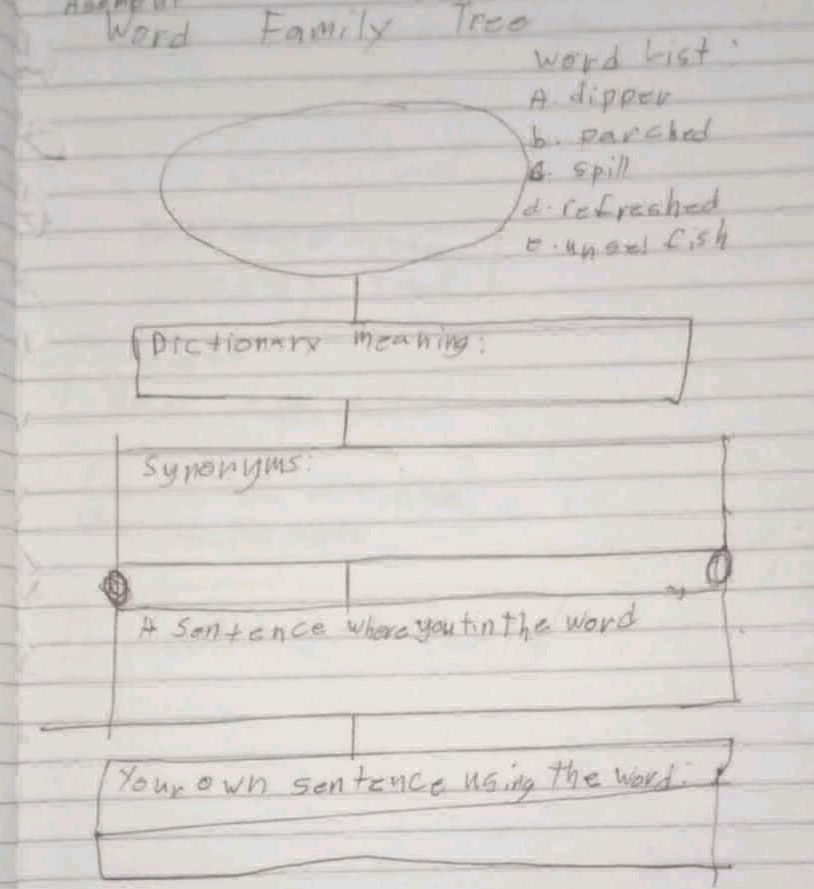 Word Family Tree
Word List:
A. dipper
b. parched
c. spill
d. refreshed
e. unselfish
Dictionary meaning:
Synonyms:
A Sentence where you fin the word
Your own sentence using the word: